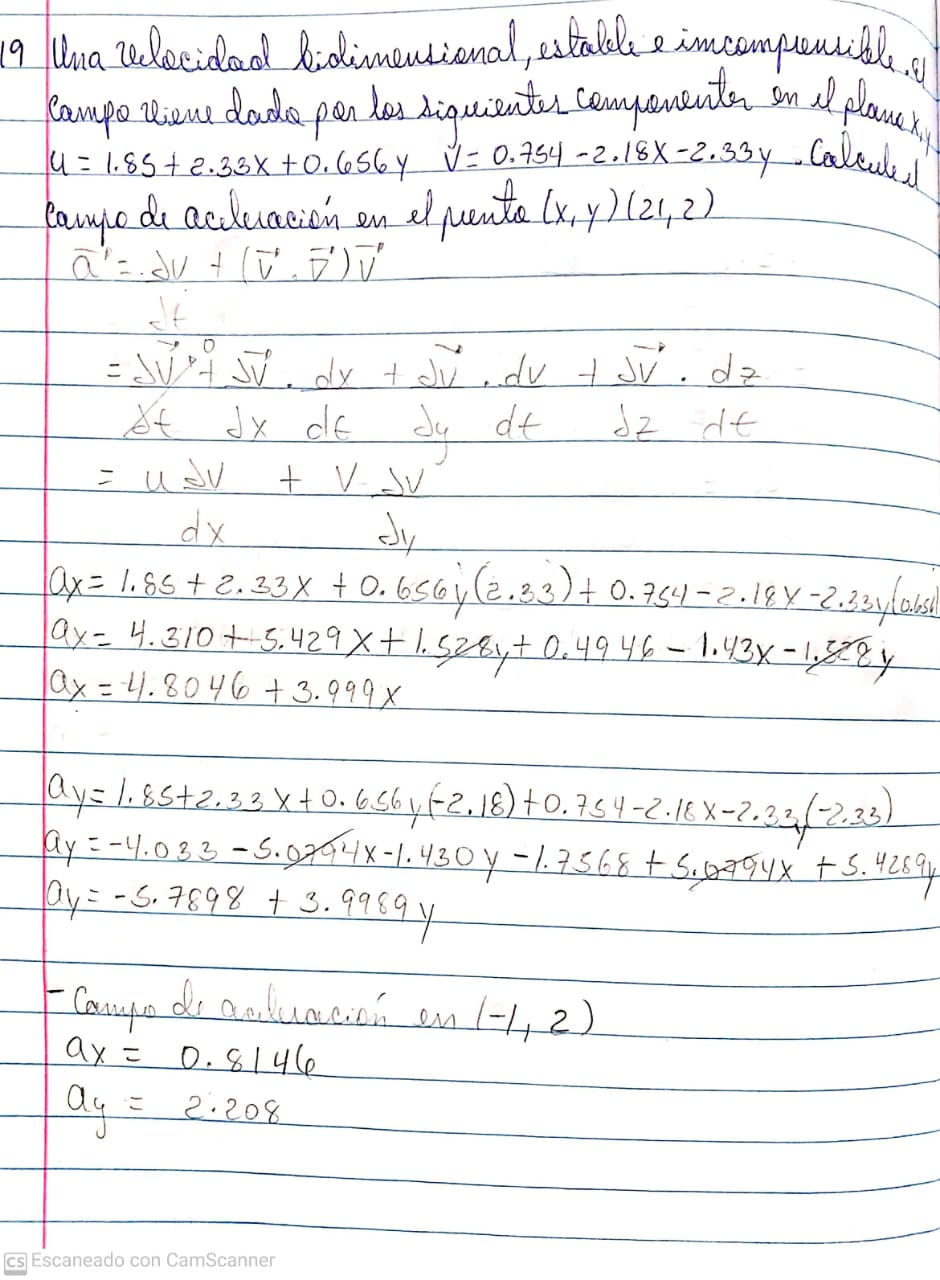 19 Una velocidad bidimensional, estable e imcompresible, el
campo viene dado por los siguientes componentes en el plano x,y
u = 1.85 + 2.33x + 0.656y V = 0.754 - 2.18x - 2.33y . Calcule el
campo de aceleración en el punto (x,y) (21,2)
a⃗ = ∂v + (v⃗ . ∇⃗) v⃗
∂t
= ∂v⃗ 0 + ∂v⃗ . dx + ∂v⃗ . dv + ∂v⃗ . dz
∂t ∂x dt ∂y dt ∂z dt
= u ∂V + V ∂V
dx ∂y
ax = 1.85 + 2.33x + 0.656y (2.33) + 0.754 - 2.18x - 2.33y (0.656)
ax = 4.310 + 5.429x + 1.528y + 0.4946 - 1.43x - 1.528y
ax = 4.8046 + 3.999x
ay = 1.85 + 2.33x + 0.656y (-2.18) + 0.754 - 2.18x - 2.33y (-2.33)
ay = -4.033 - 5.0794x - 1.430y - 1.7568 + 5.0794x + 5.4289y
ay = -5.7898 + 3.9989y
- Campo de aceleración en (-1, 2)
ax = 0.8146
ay = 2.208
CS Escaneado con CamScanner